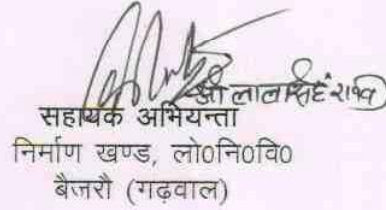 श्री लाल सिंह रावत
सहायक अभियन्ता
निर्माण खण्ड, लो०नि०वि०
बैजरौ (गढ़वाल)